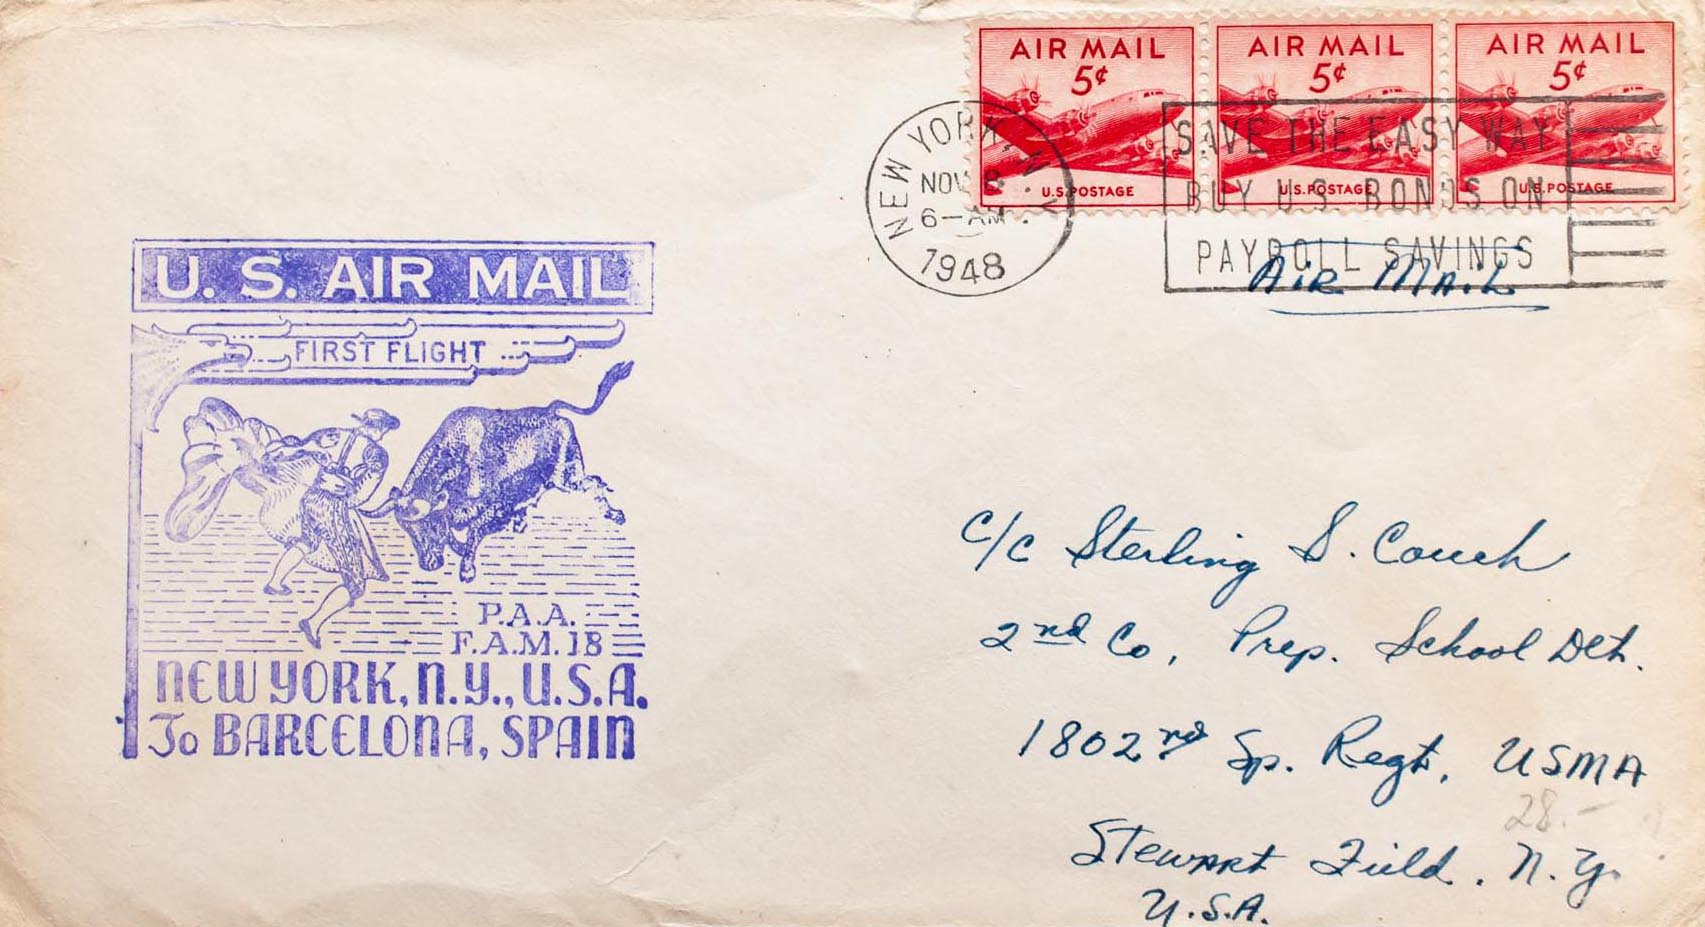 AIR MAIL AIR MAIL AIR MAIL
5¢ 5¢ 5¢
U.S. POSTAGE U.S. POSTAGE U.S. POSTAGE
NEW YORK, N.Y.
NOV 8
6-AM
1948
SAVE THE EASY WAY
BUY U.S. BONDS ON
PAYROLL SAVINGS
Air Mail
U. S. AIR MAIL
FIRST FLIGHT
P.A.A.
F.A.M. 18
NEW YORK, N.Y., U.S.A.
To BARCELONA, SPAIN
C/C Sterling S. Couch
2nd Co, Prep. School Det.
1802nd Sp. Regt, USMA
28.-
Stewart Field, N.Y.
U.S.A.